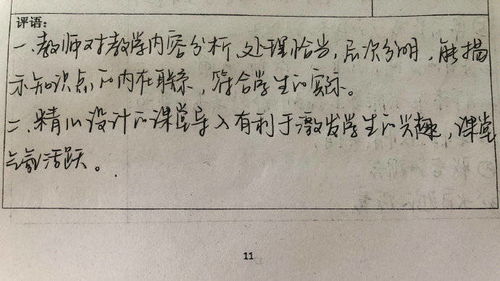 评语:
一、教师对教学内容分析、处理恰当,层次分明,能揭
示知识点的内在联系,符合学生的实际。
二、精心设计的课堂导入有利于激发学生的兴趣,课堂
气氛活跃。
11